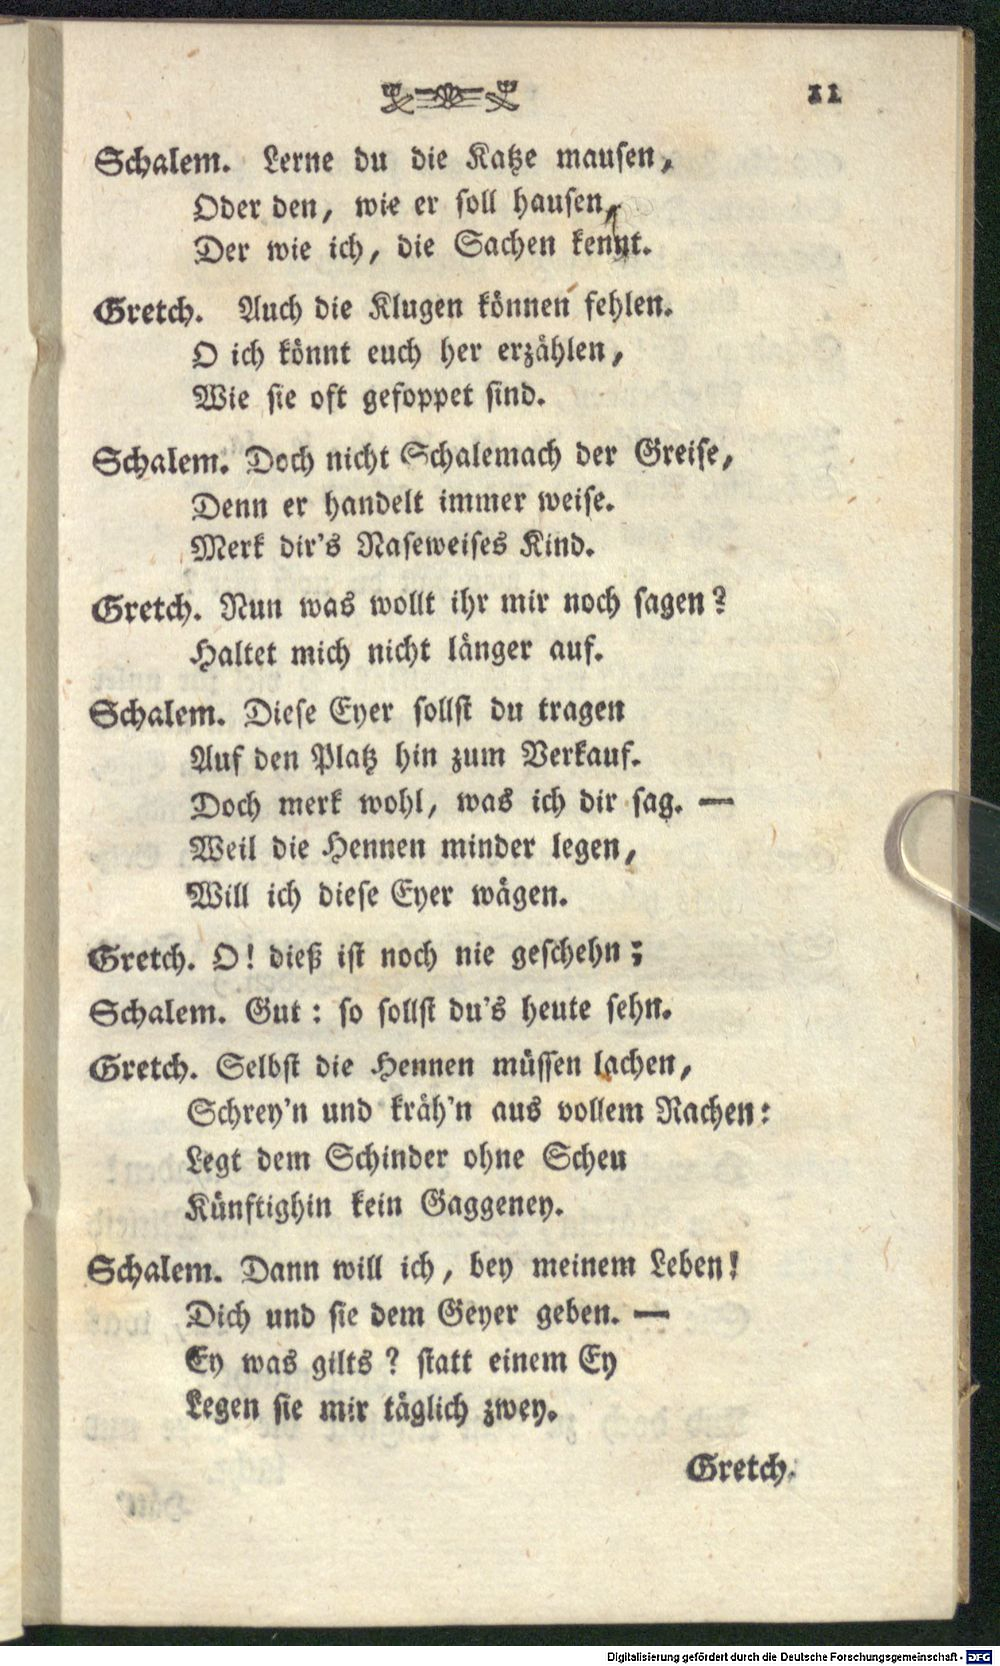 11
Schalem. Lerne du die Katze mausen,
Oder den, wie er soll hausen,
Der wie ich, die Sachen kennt.
Gretch. Auch die Klugen können fehlen.
O ich könnt euch her erzählen,
Wie sie oft gefoppet sind.
Schalem. Doch nicht Schalemach der Greise,
Denn er handelt immer weise.
Merk dir's Naseweises Kind.
Gretch. Nun was wollt ihr mir noch sagen?
Haltet mich nicht länger auf.
Schalem. Diese Eyer sollst du tragen
Auf den Platz hin zum Verkauf.
Doch merk wohl, was ich dir sag. —
Weil die Hennen minder legen,
Will ich diese Eyer wägen.
Gretch. O! dieß ist noch nie geschehn;
Schalem. Gut: so sollst du's heute sehn.
Gretch. Selbst die Hennen müssen lachen,
Schrey'n und kräh'n aus vollem Rachen:
Legt dem Schinder ohne Scheu
Künftighin kein Gaggeney.
Schalem. Dann will ich, bey meinem Leben!
Dich und sie dem Geyer geben. —
Ey was gilts? statt einem Ey
Legen sie mir täglich zwey.
Gretch.
Digitalisierung gefördert durch die Deutsche Forschungsgemeinschaft - DFG